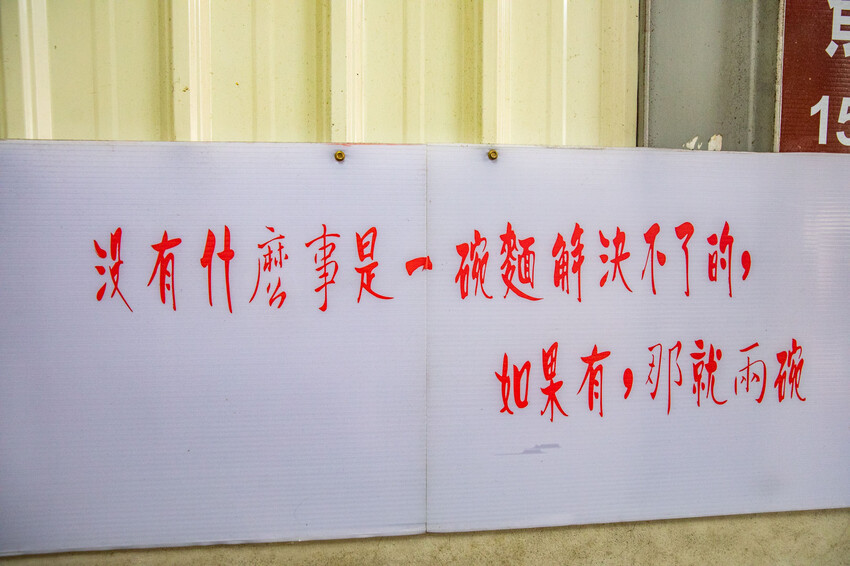 没有什麼事是一碗麵解決不了的，
如果有，那就兩碗
15